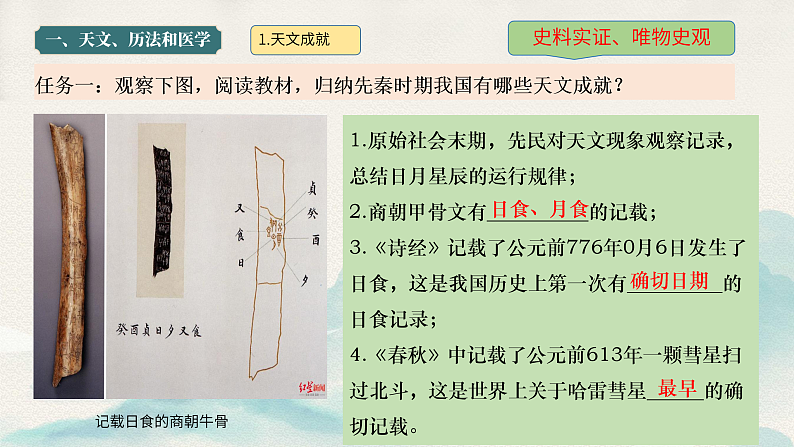 一、天文、历法和医学
1.天文成就
史料实证、唯物史观
任务一：观察下图，阅读教材，归纳先秦时期我国有哪些天文成就？
贞
癸
酉
夕
又
食
日
癸酉贞日夕又食
红星新闻
记载日食的商朝牛骨
1.原始社会末期，先民对天文现象观察记录，
总结日月星辰的运行规律；
2.商朝甲骨文有日食、月食的记载；
3.《诗经》记载了公元前776年0月6日发生了
日食，这是我国历史上第一次有确切日期的
日食记录；
4.《春秋》中记载了公元前613年一颗彗星扫
过北斗，这是世界上关于哈雷彗星最早的确
切记载。